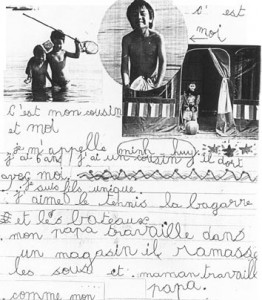 c'est
moi
C'est mon cousin
et moi
je m'appelle minh huy
j'ai 6 ans j'ai un cousin il dort
avec moi
je suis fils unique.
j'aime le tennis la bagarre
et les bateaux
mon papa travaille dans
un magasin il ramasse
les sous et maman travaille
comme mon papa.